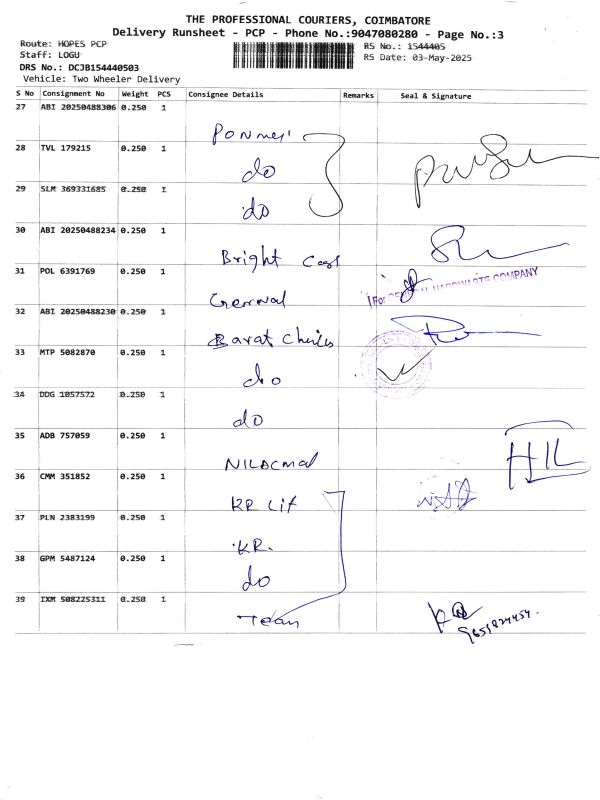 THE PROFESSIONAL COURIERS, COIMBATORE
Delivery Runsheet - PCP - Phone No.:9047080280 - Page No.:3
Route: HOPES PCP
RS No.: 1544405
Staff: LOGU
RS Date: 03-May-2025
DRS No.: DCJB154440503
Vehicle: Two Wheeler Delivery
S No Consignment No Weight PCS Consignee Details Remarks Seal & Signature
27 ABI 20250488306 0.250 1
28 TVL 179215 0.250 1 do
29 SLM 369331685 0.250 1 do
30 ABI 20250488234 0.250 1 Bright
31 POL 6391769 0.250 1
32 ABI 20250488230 0.250 1 Barat
33 MTP 5082870 0.250 1 do
34 DDG 1057572 0.250 1 do
35 ADB 757059 0.250 1 HIL
36 CMM 351852 0.250 1 KR Lif
37 PLN 2383199 0.250 1 KR.
38 GPM 5487124 0.250 1 do
39 IXM 508225311 0.250 1 Team